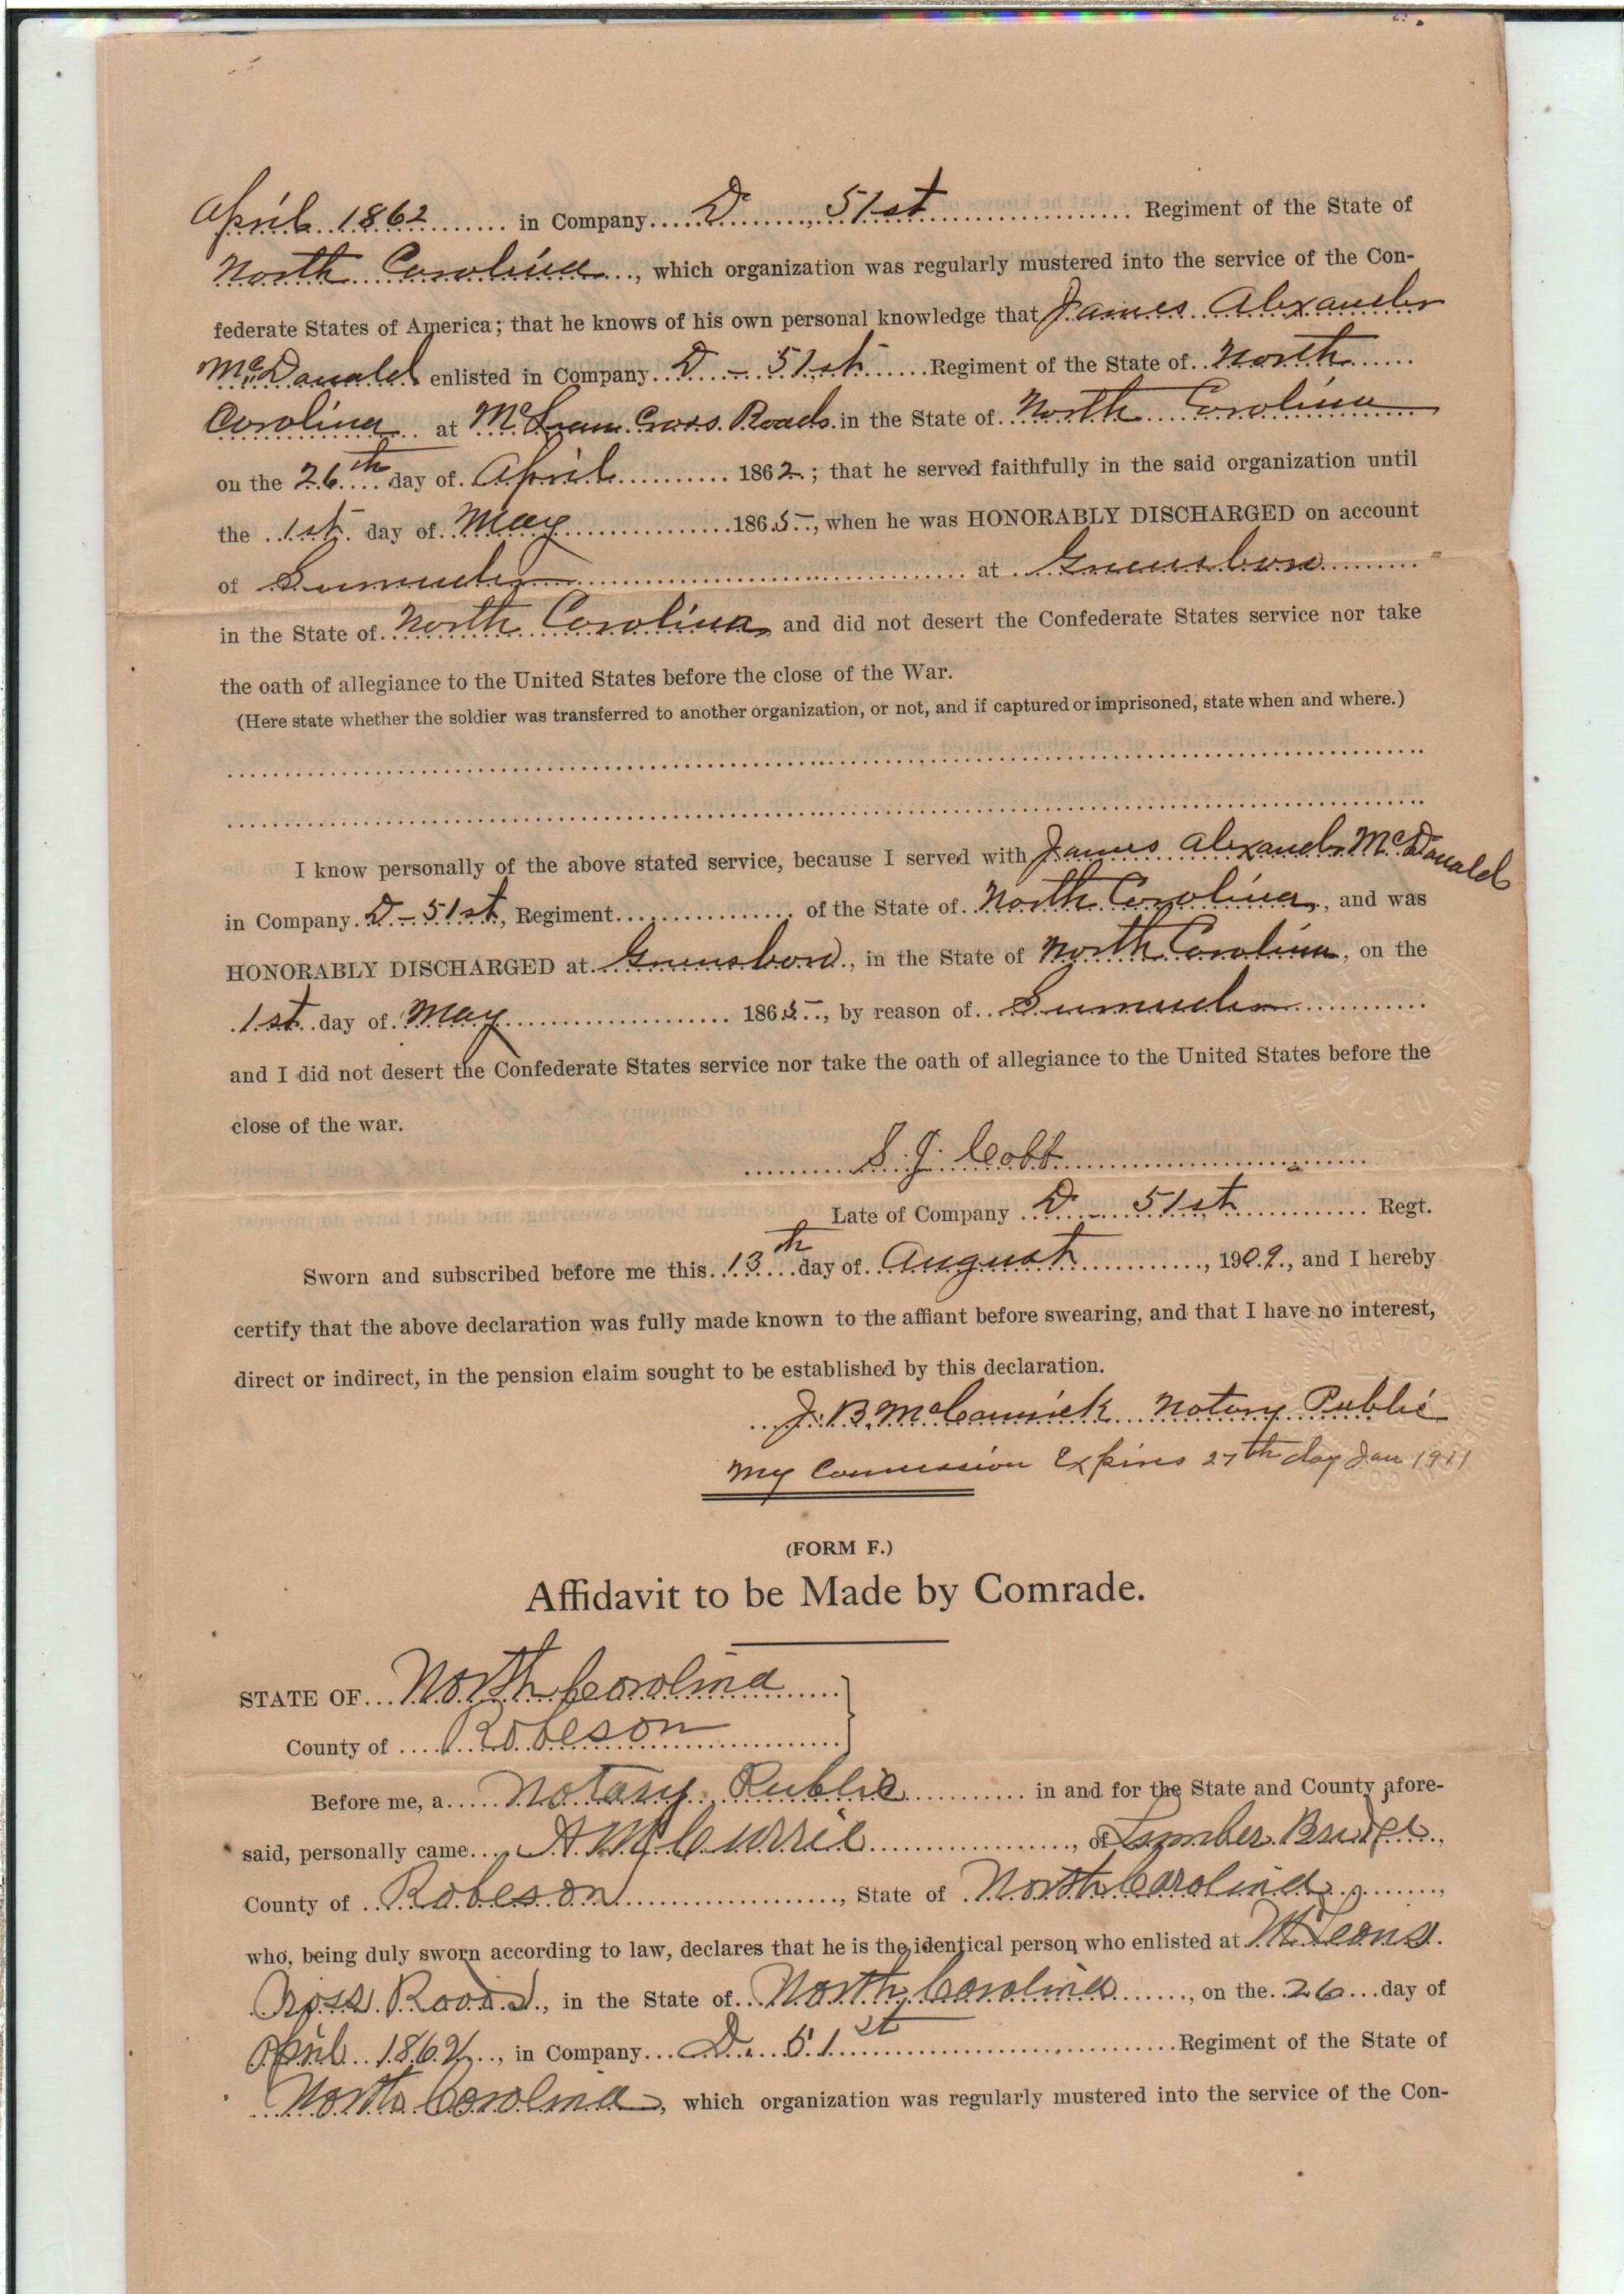 April 1862 in Company D, 51st Regiment of the State of
North Carolina, which organization was regularly mustered into the service of the Con-
federate States of America; that he knows of his own personal knowledge that James Alexander
McDonald enlisted in Company D - 51st Regiment of the State of North
Carolina at Cross Roads in the State of North Carolina
on the 26th day of April 1862; that he served faithfully in the said organization until
the 1st day of May 1865, when he was HONORABLY DISCHARGED on account
of Surrender at Greensboro
in the State of North Carolina and did not desert the Confederate States service nor take
the oath of allegiance to the United States before the close of the War.
(Here state whether the soldier was transferred to another organization, or not, and if captured or imprisoned, state when and where.)
I know personally of the above stated service, because I served with James Alexander McDonald
in Company D - 51st, Regiment of the State of North Carolina, and was
HONORABLY DISCHARGED at Greensboro, in the State of North Carolina, on the
1st day of May 1865, by reason of Surrender
and I did not desert the Confederate States service nor take the oath of allegiance to the United States before the
close of the war.
S. J. Cobb
Late of Company D - 51st Regt.
Sworn and subscribed before me this 13th day of August, 1909, and I hereby
certify that the above declaration was fully made known to the affiant before swearing, and that I have no interest,
direct or indirect, in the pension claim sought to be established by this declaration.
J. B. McCormick Notary Public
My Commission Expires 27th day Jan 1911
(FORM F.)
Affidavit to be Made by Comrade.
STATE OF North Carolina
County of Robeson
Before me, a Notary Public in and for the State and County afore-
said, personally came Currie, of Lumber Bridge,
County of Robeson, State of North Carolina,
who, being duly sworn according to law, declares that he is the identical person who enlisted at McLeons
Cross Roads, in the State of North Carolina, on the 26 day of
April 1862, in Company D. 51st Regiment of the State of
North Carolina, which organization was regularly mustered into the service of the Con-